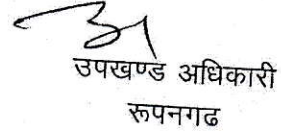 उपखण्ड अधिकारी
रूपनगढ